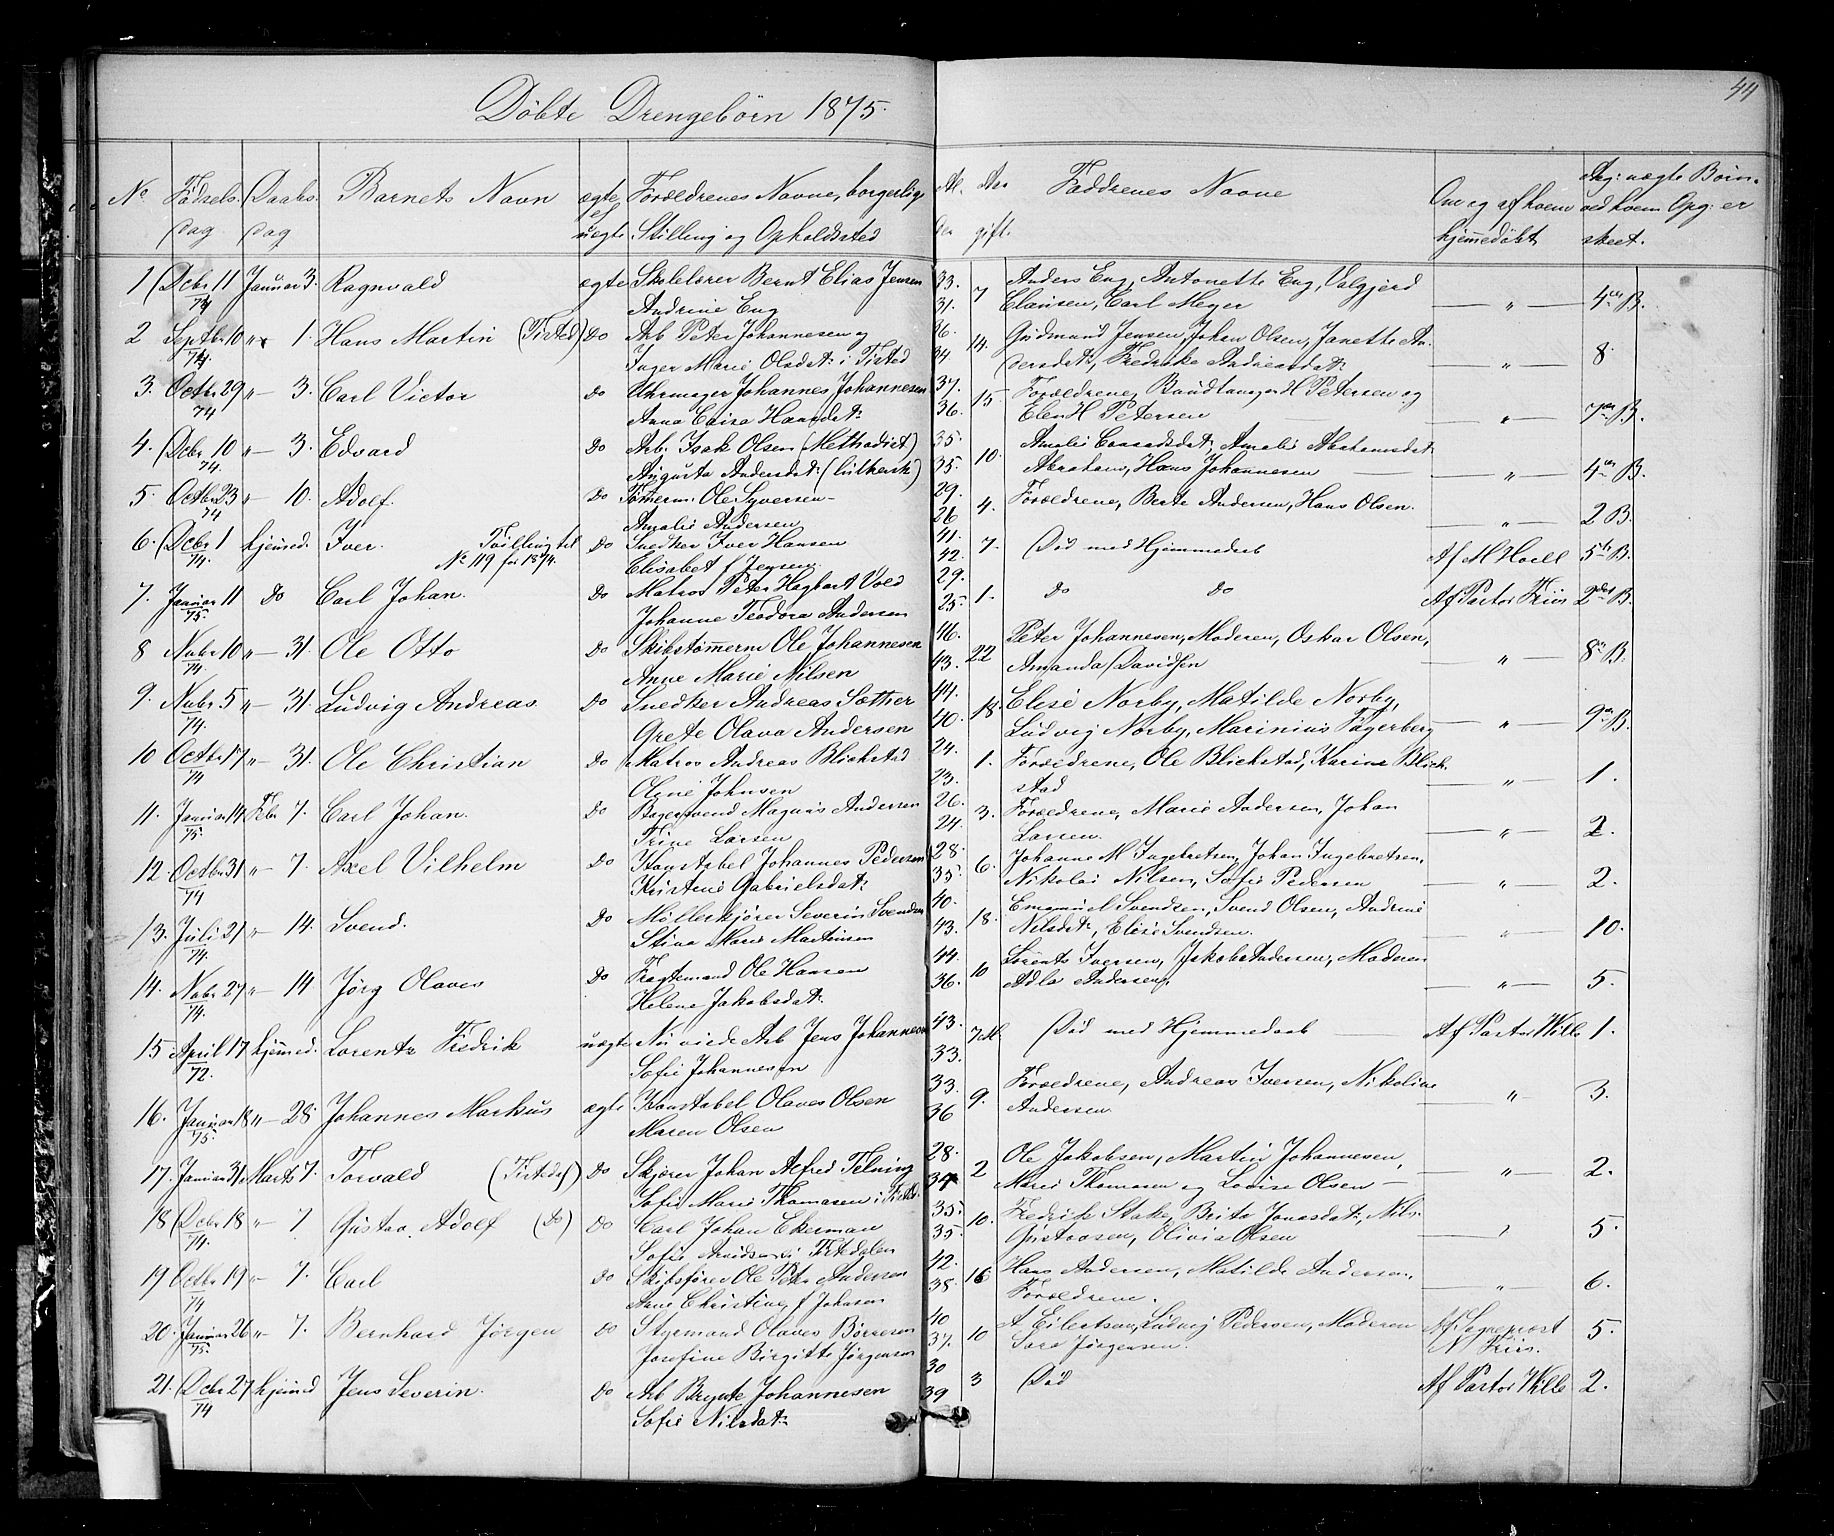 44
Döbte Drengebörn 1875.
No Födsels Dag Daabs Dag Barnets Navn ægte el uægte Forældrenes Navne, borgerlig Stilling og Opholdssted Al der Aar gift. Faddrenes Navne Om og af hvem hjemmedöbt Ang: uægte Börn ved hvem Opg: er skeet.
1 Dcbr 11 Januar 3. Ragnvald ægte Skolelærer Bernt Elias Jensen 33. 7 Anders Eng, Antonette Eng, Valgjerd
74 Andrine Eng 31. Clausen, Carl Meyer " 4 B.
2 Septbr 10 " 1. Hans Martin (Tisted) Do Arb Peter Johannesen og 36. 14. Gudmund Jensen, Johan Olsen, Janette An-
74 Inger Marie Olsdat: i Tisted 34. dersdat, Fredrike Andreasdat: " 8
3. Octbr 29 " 3. Carl Victor Do Uhrmager Johannes Johannesen 37. 15. Forældrene, H Petersen og
74 Anna 36. Elen H Petersen " 7 B.
4. Dcbr 10 " 3. Edvard Do Arb. Isak Olsen (Methodist) 35. 10. Amalie Amalie Abrahamsdat
74. Augusta Andersdat: (luthersk) 35. Abraham, Hans Johannesen " 4 B.
5. Octbr 23 " 10. Adolf. Do Tömerm: Ole Syversen 29. 4. Forældrene, Berte Andersen, Hans Olsen.
74 Amalie Andersen 26 " 2 B.
6. Dcbr 1 hjemed. Iver. Tvilling til Do Snedker Iver Hansen 41. 7. Död med Hjemmedaab Af M Hoell 5 B.
74. No 119 for 1874. Elisabet f Jensen. 42.
7. Januar 11 Do Carl Johan. Do Matros Peter Hagbart Vold 29. 1. Do Do Af Pastor Friis 2 B.
75. Johanne Teodora Andersen 25.
8 Nvbr 10 " 31. Ole Otto Do Skibstömerm Ole Johannesen 46. 22 Peter Johannesen, Moderen, Oskar Olsen,
74 Anne Marie Nilsen 43. Amanda Davidsen " 8 B.
9. Nvbr 5 " 31. Ludvig Andreas Do Snedker Andreas Sæther 44. 18 Elise Norby, Matilde Norby,
74. Grete Olava Andersen 40. Ludvig Norby, Marinius Fagerberg " 9 B.
10 Octbr 17 " 31. Ole Christian Do Matros Andreas Blickstad 24. 1. Forældrene, Ole Blickstad, Karine Blick-
74 Olene Johnsen 23. stad " 1.
11. Januar 14 Febr 7. Carl Johan. Do Bagersvend Magnus Andersen 26. 3. Forældrene, Marie Andersen, Johan
75. Trine Larsen 24. Larsen. " 2.
12 Octbr 31 " 7. Axel Vilhelm Do Konstabel Johannes Pedersen 28. 6. Johanne M Ingebretsen, Johan Ingebretsen,
74 Kristene Gabrielsdat: 35. Nikolai Nilsen, Sofie Pedersen " 2.
13. Juli 21 " 14. Svend. Do Möllerkjörer Severin Svendsen 40. 18. Emanuel Svendsen, Svend Olsen, Andrine
74. Stina Marie Martinsen 43. Nilsdat, Elise Svendsen. " 10.
14. Nvbr 27 " 14 Jörg Olaves Do Fragtemand Ole Hansen 44. 10 Lorents Iversen, Jakob Andersen, Moderen
74. Helene Jakobsdat: 36. Adla Andersen, " 5.
15 April 17 hjemed. Lorents Fredrik uægte Nu viede Arb Jens Johannesen 43. 7 M. Död med Hjemmedaab Af Pastor Wille 1.
72. Sofie Johannesen 33.
16. Januar 18 " 28 Johannes Markus ægte Konstabel Olaves Olsen 33. 9. Forældrene, Andreas Iversen, Nikoline
75. Maren Olsen 36 Andersen. " 3.
17. Januar 31 Marts 7. Torvald (Tistedl) Do Skjærer Johan Alfred Telning 28. 2 Ole Jakobsen, Martin Johannesen,
Sofie Marie Thomasen i Tistdl. 34 Marie Thomasen og Lovise Olsen " 2.
18 Dcbr 18 " 7 Gustav Adolf (Do) Do Carl Johan Ekerman 35. 10. Fredrik Stake, Brita Jonasdat, Nils
74. Sofie Arvidsen i Tistedalen 35. Gustavsen, Olivia Olsen " 5.
19 Octbr 19 " 7. Carl Do Skibsförer Ole Petr Andersen 42. 16 Hans Andersen, Matilde Andersen,
74 Anne Christine f Johnsen 38. Forældrene. " 6.
20. Januar 26 " 7. Bernhard Jörgen Do Styrmand Olaves Börresen 40 10 A Eilertsen, Ludvig Pedersen, Moderen Af Sogneprest 5.
75. Josefine Birgitte Jörgensen 37. Sara Jörgensen. N Friis.
21. Dcbr 27 hjemed Jens Severin. Do Arb Brynte Johannesen 30 3 Död Af Pastor Wille 2.
74 Sofie Nilsdat: 39